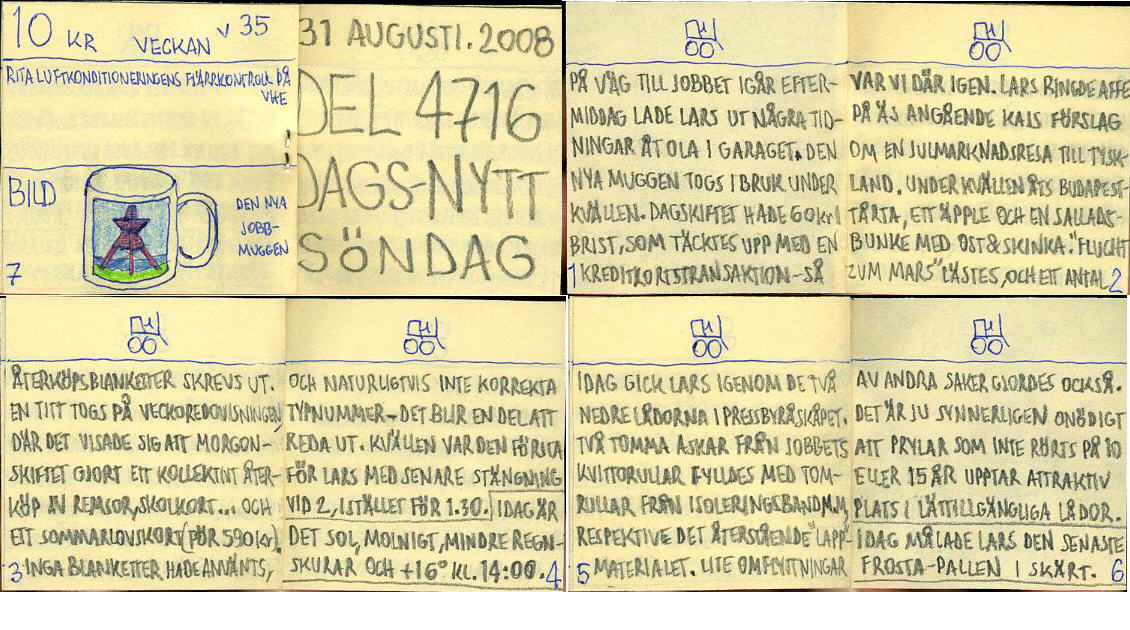 10 KR VECKAN V 35
RITA LUFTKONDITIONERINGENS FJÄRRKONTROLL PÅ
VHE
BILD
DEN NYA
JOBB-
MUGGEN
7
31 AUGUSTI. 2008
DEL 4716
DAGS-NYTT
SÖNDAG
PÅ VÄG TILL JOBBET IGÅR EFTER-
MIDDAG LADE LARS UT NÅGRA TID-
NINGAR ÅT OLA I GARAGET. DEN
NYA MUGGEN TOGS I BRUK UNDER
KVÄLLEN. DAGSKIFTET HADE 60KR I
BRIST, SOM TÄCKTES UPP MED EN
KREDITKORTSTRANSAKTION-SÅ
1
VAR VI DÄR IGEN. LARS RINGDE AFFE
PÅ ÄS ANGÅENDE KAIS FÖRSLAG
OM EN JULMARKNADSRESA TILL TYSK-
LAND. UNDER KVÄLLEN ÅTS BUDAPEST-
TÅRTA, ETT ÄPPLE OCH EN SALLADS-
BUNKE MED OST & SKINKA. "FLUCHT
ZUM MARS" LÄSTES, OCH ETT ANTAL
2
ÅTERKÖPSBLANKETTER SKREVS UT.
EN TITT TOGS PÅ VECKOREDOVISNINGEN,
DÄR DET VISADE SIG ATT MORGON-
SKIFTET GJORT ETT KOLLEKTIVT ÅTER-
KÖP AV REMSOR, SKOLKORT... OCH
ETT SOMMARLOVSKORT (FÖR 590KR).
INGA BLANKETTER HADE ANVÄNTS,
3
OCH NATURLIGTVIS INTE KORREKTA
TYPNUMMER-DET BLIR EN DEL ATT
REDA UT. KVÄLLEN VAR DEN FÖRSTA
FÖR LARS MED SENARE STÄNGNING
VID 2, ISTÄLLET FÖR 1.30. IDAG ÄR
DET SOL, MOLNIGT, MINDRE REGN-
SKURAR OCH +16° KL. 14:00.
4
IDAG GICK LARS IGENOM DE TVÅ
NEDRE LÅDORNA I PRESSBYRÅSKÅPET.
TVÅ TOMMA ASKAR FRÅN JOBBETS
KVITTORULLAR FYLLDES MED TOM-
RULLAR FRÅN ISOLERINGSBAND M.M,
RESPEKTIVE DET ÅTERSTÅENDE "LAPP-
MATERIALET. LITE OMFLYTTNINGAR
5
AV ANDRA SAKER GJORDES OCKSÅ.
DET ÄR JU SYNNERLIGEN ONÖDIGT
ATT PRYLAR SOM INTE RÖRTS PÅ 10
ELLER 15 ÅR UPPTAR ATTRAKTIV
PLATS I LÄTTILLGÄNGLIGA LÅDOR.
IDAG MÅLADE LARS DEN SENASTE
FROSTA-PALLEN I SKÄRT.
6